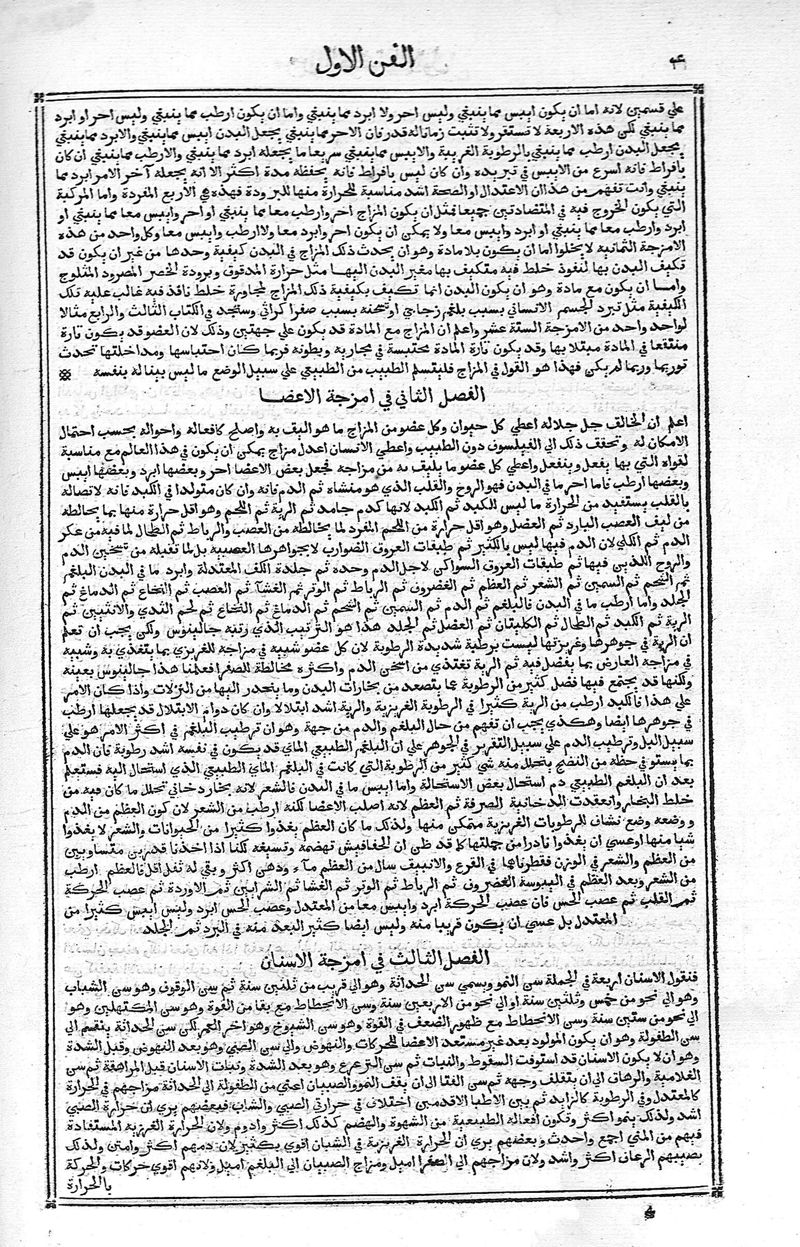 الفن الاول
علي قسمين لانه اما ان يكون ايبس مما ينبغي وليس احر ولا ابرد مما ينبغي واما ان يكون ارطب مما ينبغي وليس احر او ابرد
مما ينبغي لكن هذه الاربعة لا تستقر ولا تثبت زمانا له قدر فان الاحر مما ينبغي يجعل البدن ايبس مما ينبغي والابرد مما ينبغي
يجعل البدن ارطب مما ينبغي بالرطوبة الغريبة والايبس مما ينبغي سريعا ما يجعله ابرد مما ينبغي والارطب مما ينبغي ان كان
بافراط فانه اسرع من الايبس في تبريده وان كان ليس بافراط فانه يحفظه مدة اكثر الا انه يجعله آخر الامر ابرد مما
ينبغي وانت تفهم من هذا ان الاعتدال او الصحة اشد مناسبة للحرارة منها للبرودة فهذه هي الاربع المفردة واما المركبة
التي يكون الخروج فيه في المتضادتين جميعا فمثل ان يكون المزاج احر وارطب معا مما ينبغي او احر وايبس معا مما ينبغي او
ابرد وارطب معا مما ينبغي او ابرد وايبس معا ولا يمكن ان يكون احر وابرد معا ولا ارطب وايبس معا وكل واحد من هذه
الامزجة الثمانية لا يخلوا اما ان يكون بلا مادة وهو ان يحدث ذلك المزاج في البدن كيفية وحدها من غير ان يكون قد
تكيف البدن بها لنفوذ خلط فيه متكيف بها مغير البدن اليها مثل حرارة المدقوق وبرودة الخصر المصرود المثلوج
واما ان يكون مع مادة وهو ان يكون البدن انما تكيف بكيفية ذلك المزاج لمجاورة خلط نافذ فيه غالب عليه تلك
الكيفية مثل تبرد الجسم الانساني بسبب بلغم زجاجي او تسخنه بسبب صفرا كراثي وستجد في الكتاب الثالث والرابع مثالا
لواحد واحد من الامزجة الستة عشر واعلم ان المزاج مع المادة قد يكون علي جهتين وذلك لان العضو قد يكون تارة
منتقعا في المادة مبتلا بها وقد يكون تارة المادة محتبسة في مجاريه وبطونه فربما كان احتباسها ومداخلتها تحدث
توريما وربما لم يكن فهذا هو القول في المزاج فليتسلم الطبيب من الطبيعي علي سبيل الوضع ما ليس بينا له بنفسه
الفصل الثاني في امزجة الاعضا
اعلم ان الخالق جل جلاله اعطي كل حيوان وكل عضو من المزاج ما هو اليق به واصلح لافعاله واحواله بحسب احتمال
الامكان له وتحقق ذلك الي الفيلسوف دون الطبيب واعطي الانسان اعدل مزاج يمكن ان يكون في هذا العالم مع مناسبة
لقواه التي بها يفعل وينفعل واعطي كل عضو ما يليق به من مزاجه فجعل بعض الاعضا احر وبعضها ابرد وبعضها ايبس
وبعضها ارطب فاما احر ما في البدن فهو الروح والقلب الذي هو منشاه ثم الدم فانه وان كان متولدا في الكبد فانه لاتصاله
بالقلب يستفيد من الحرارة ما ليس للكبد ثم الكبد لانها كدم جامد ثم الرية ثم اللحم وهو اقل حرارة منها بما يخالطه
من ليف العصب البارد ثم العضل وهو اقل حرارة من اللحم المفرد لما يخالطه من العصب والرباط ثم الطحال لما فيه من عكر
الدم ثم الكلي لان الدم فيها ليس بالكثير ثم طبقات العروق الضوارب لا بجواهرها العصبية بل لما تقبله من تسخين الدم
والروح اللذين فيها ثم طبقات العروق السواكن لاجل الدم وحده ثم جلدة الكف المعتدلة وابرد ما في البدن البلغم
ثم الشحم ثم السمين ثم الشعر ثم العظم ثم الغضروف ثم الرباط ثم الوتر ثم الغشآ ثم العصب ثم النخاع ثم الدماغ ثم
الجلد واما ارطب ما في البدن فالبلغم ثم الدم ثم السمين ثم الشحم ثم الدماغ ثم النخاع ثم لحم الثدي والانثيين ثم
الرية ثم الكبد ثم الطحال ثم الكليتان ثم العضل ثم الجلد هذا هو الترتيب الذي رتبه جالينوس ولكن يجب ان تعلم
ان الرية في جوهرها وغريزتها ليست برطبة شديدة الرطوبة لان كل عضو شبيه في مزاجه للغريزي بما يتغذي به وشبيه
في مزاجه العارض بما يفضل فيه ثم الرية تغتذي من اسخن الدم واكثره مخالطة للصفرا فعلمنا هذا جالينوس بعينه
ولكنها قد يجتمع فيها فضل كثير من الرطوبة عما يتصعد من بخارات البدن وما ينحدر اليها من النزلات واذا كان الامر
علي هذا فالكبد ارطب من الرية كثيرا في الرطوبة الغريزية والرية اشد ابتلالا وان كان دوام الابتلال قد يجعلها ارطب
في جوهرها ايضا وهكذي يجب ان تفهم من حال البلغم والدم من جهة وهو ان ترطيب البلغم في اكثر الامر هو علي
سبيل البل وترطيب الدم علي سبيل التقرير في الجوهر علي ان البلغم الطبيعي الماي قد يكون في نفسه اشد رطوبة فان الدم
بما يستوفي حظه من النضج يتحلل منه شي كثير من الرطوبة التي كانت في البلغم الماي الطبيعي الذي استحال اليه فستعلم
بعد ان البلغم الطبيعي دم استحال بعض الاستحالة واما ايبس ما في البدن فالشعر لانه بخار دخاني تحلل ما كان فيه من
خلط البخار وانعقدت الدخانية الصرفة ثم العظم لانه اصلب الاعضا لكنه ارطب من الشعر لان كون العظم من الدم
ووضعه وضع نشاف للرطوبات الغريزية متمكن منها ولذلك ما كان العظم يغذوا كثيرا من الحيوانات والشعر لا يغذوا
شيا منها او عسي ان يغذوا نادرا من جملتها كما قد ظن ان الخفافيش تهضمه وتسيغه لكنا اذا اخذنا قدرين متساويين
من العظم والشعر في الوزن فقطرناهما في القرع والانبيق سال من العظم مآء ودهن اكثر وبقي له ثفل اقل فالعظم ارطب
من الشعر وبعد العظم في اليبوسة الغضروف ثم الرباط ثم الوتر ثم الغشا ثم الشرايين ثم الاوردة ثم عصب الحركة
ثم القلب ثم عصب الحس فان عصب الحركة ابرد وايبس معا من المعتدل وعصب الحس ابرد وليس ايبس كثيرا من
المعتدل بل عسي ان يكون قريبا منه وليس ايضا كثير البعد منه في البرد ثم الجلد
الفصل الثالث في امزجة الاسنان
فنقول الاسنان اربعة في الجملة سن النمو ويسمي سن الحداثة وهو الي قريب من ثلثين سنة ثم سن الوقوف وهو سن الشباب
وهو الي نحو من خمس وثلثين سنة او الي نحو من الاربعين سنة وسن الانحطاط مع بقا من القوة وهو سن المكتهلين وهو
الي نحو من ستين سنة وسن الانحطاط مع ظهور الضعف في القوة وهو سن الشيوخ وهو اخر العمر لكن سن الحداثة ينقسم الي
سن الطفولة وهو ان يكون المولود بعد غير مستعد الاعضا للحركات والنهوض والي سن الصبي وهو بعد النهوض وقبل الشدة
وهو ان لا يكون الاسنان قد استوفت السقوط والنبات ثم سن الترعرع وهو بعد الشدة ونبات الاسنان قبل المراهقة ثم سن
الغلامية والرهاق الي ان يتقلب وجهه ثم سن الفتا الي ان يقف النمو والصبيان اعني من الطفولة الي الحداثة مزاجهم في الحرارة
كالمعتدل وفي الرطوبة كالزايد ثم بين الاطبا الاقدمين اختلاف في حرارتي الصبي والشاب فبعضهم يري ان حرارة الصبي
اشد ولذلك ينمو اكثر وتكون افعاله الطبيعية من الشهوة والهضم كذلك اكثر وادوم ولان الحرارة الغريزية المستفادة
فيهم من المني اجمع واحدث وبعضهم يري ان الحرارة الغريزية في الشبان اقوي بكثير لان دمهم اكثر وامتن ولذلك
يصيبهم الرعاف اكثر واشد ولان مزاجهم الي الصفرا اميل ومزاج الصبيان الي البلغم اميل ولانهم اقوي حركات والحركة
بالحرارة